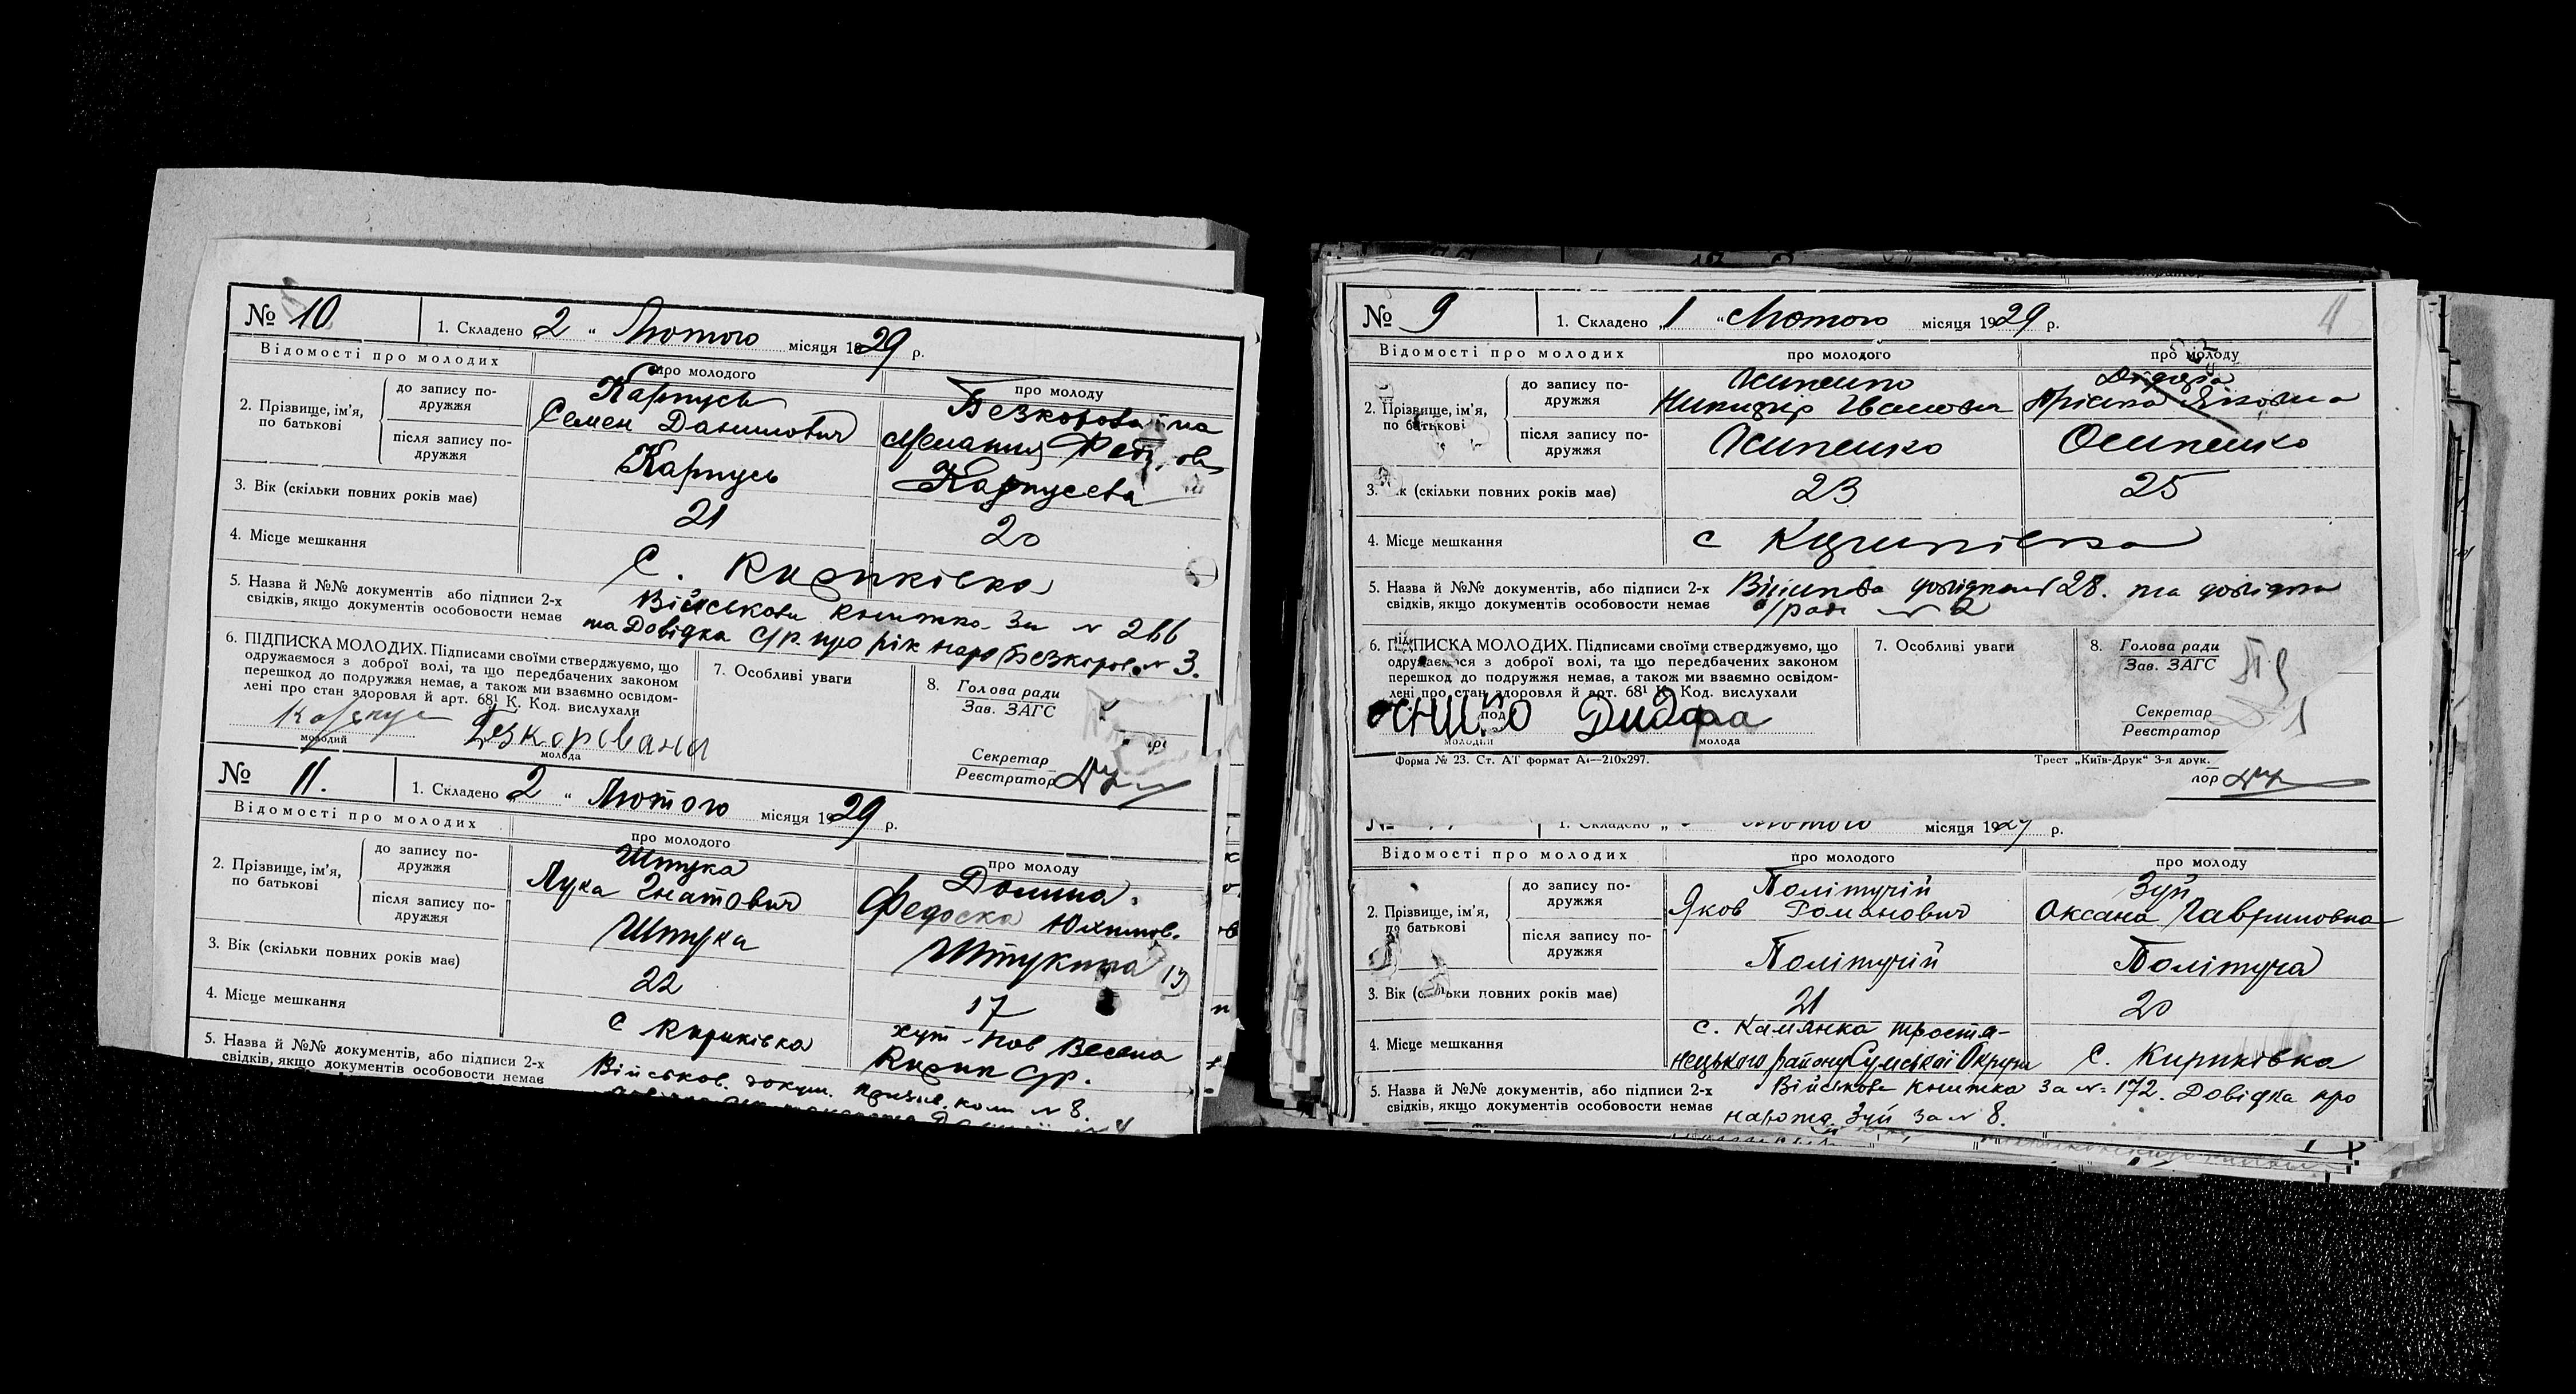 № 10
1. Складено 2 " Лютого місяця 1929 р.
Відомості про молодих
про молодого
про молоду
2. Прізвище, ім'я, по батькові
до запису подружжя
Карпусь
Семен Данилович
Безкоровайна
Мелания Федоров
після запису подружжя
Карпусь
Карпусева
3. Вік (скільки повних років має)
21
20
4. Місце мешкання
С. Кириківка
5. Назва й №№ документів або підписи 2-х
свідків, якщо документів особовости немає
Військова книжка за № 266
та Довідка С/р. про рік наро Безкоров. № 3.
6. ПІДПИСКА МОЛОДИХ. Підписами своїми стверджуємо, що
одружаємося з доброї волі, та що передбачених законом
перешкод до подружжя немає, а також ми взаємно освідом-
лені про стан здоровля й арт. 68¹ К. Код. вислухали
Карпус
молодий
Безкорована
молода
7. Особливі уваги
8. Голова ради
Зав. ЗАГС
Секретар
Реєстратор
№ 11.
1. Складено 2 " Лютого місяця 1929 р.
Відомості про молодих
про молодого
про молоду
2. Прізвище, ім'я,
по батькові
до запису по-
дружжя
Штука
Лука Гнатович
Долина.
Федоска Юхимов.
після запису по-
дружжя
Штука
Штукина
3. Вік (скільки повних років має)
22
17
4. Місце мешкання
с Кириківка
хут-Нов Весела
Кирик С/р.
5. Назва й №№ документів, або підписи 2-х
свідків, якщо документів особовости немає
Військов. докум. призив. коми № 8.
№ 9
1. Складено „1 " Лютого місяця 1929 р.
4
Відомості про молодих
про молодого
про молоду
2. Прізвище, ім'я,
по батькові
до запису по-
дружжя
Никифір Іванович
Яковна
після запису по-
дружжя
Осипенко
3. Вік (скільки повних років має)
23
25
4. Місце мешкання
с Кириківка
5. Назва й №№ документів, або підписи 2-х
свідків, якщо документів особовости немає
28. та довідка
с/ради № 2
6. ПІДПИСКА МОЛОДИХ. Підписами своїми стверджуємо, що
одружаємося з доброї волі, та що передбачених законом
перешкод до подружжя немає, а також ми взаємно освідом-
лені про стан здоровля й арт. 68¹ К. Код. вислухали
молодий
молода
7. Особливі уваги
8. Голова ради
Зав. ЗАГС
Секретар
Реєстратор
Форма № 23. Ст. АТ формат А₄—210х297.
Трест „Київ-Друк" 3-я друк.
1. Складено „ Лютого місяця 1929 р.
Відомості про молодих
про молодого
про молоду
2. Прізвище, ім'я,
по батькові
до запису по-
дружжя
Політучій
Яков Романович
Зуй
Оксана Гавриловна
після запису по-
дружжя
Політучій
Політуча
3. Вік (скільки повних років має)
21
20
4. Місце мешкання
с. Камянка Тростя-
нецького району Сумської Округи
с. Кириківка
5. Назва й №№ документів, або підписи 2-х
свідків, якщо документів особовости немає
Військова книжка за № 172. Довідка про
народж. Зуй за № 8.